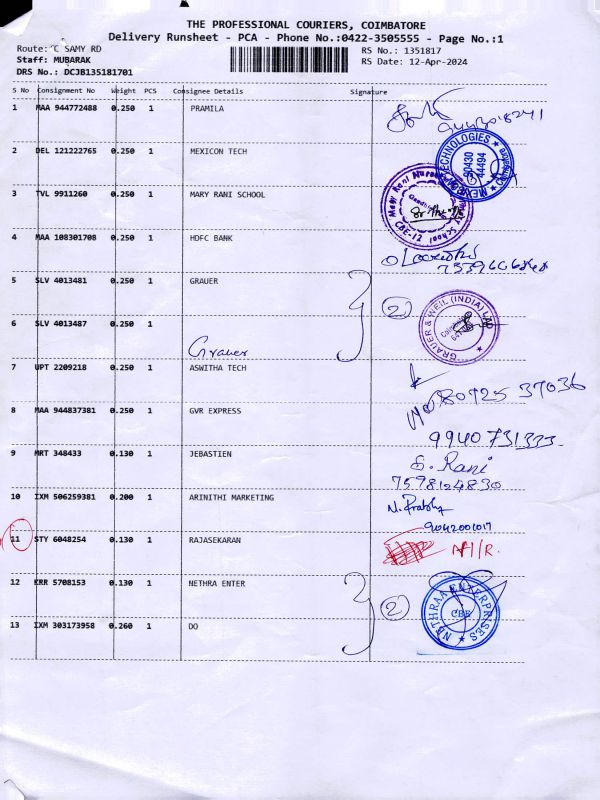 THE PROFESSIONAL COURIERS, COIMBATORE
Delivery Runsheet - PCA - Phone No.:0422-3505555 - Page No.:1
Route: C SAMY RD RS No.: 1351817
Staff: MUBARAK RS Date: 12-Apr-2024
DRS No.: DCJB135181701
S No Consignment No Weight PCS Consignee Details Signature
1 MAA 944772488 0.250 1 PRAMILA
2 DEL 121222765 0.250 1 MEXICON TECH
TECHNOLOGIES 98430 44494
3 TVL 9911260 0.250 1 MARY RANI SCHOOL
Mary Rani School CBE-12
4 MAA 108301708 0.250 1 HDFC BANK
5 SLV 4013481 0.250 1 GRAUER
2
GRAUER & WEIL (INDIA) LTD
6 SLV 4013487 0.250 1
Grauer
7 UPT 2209218 0.250 1 ASWITHA TECH
80725 37036
8 MAA 944837381 0.250 1 GVR EXPRESS
9940 731333
9 MRT 348433 0.130 1 JEBASTIEN S. Rani
7598124830
10 IXM 506259381 0.200 1 ARINITHI MARKETING N. Prabhu
9042001017
11 STY 6048254 0.130 1 RAJASEKARAN
12 ERR 5708153 0.130 1 NETHRA ENTER
2
NETHRAA ENTERPRISES CBE
13 IXM 303173958 0.260 1 DO